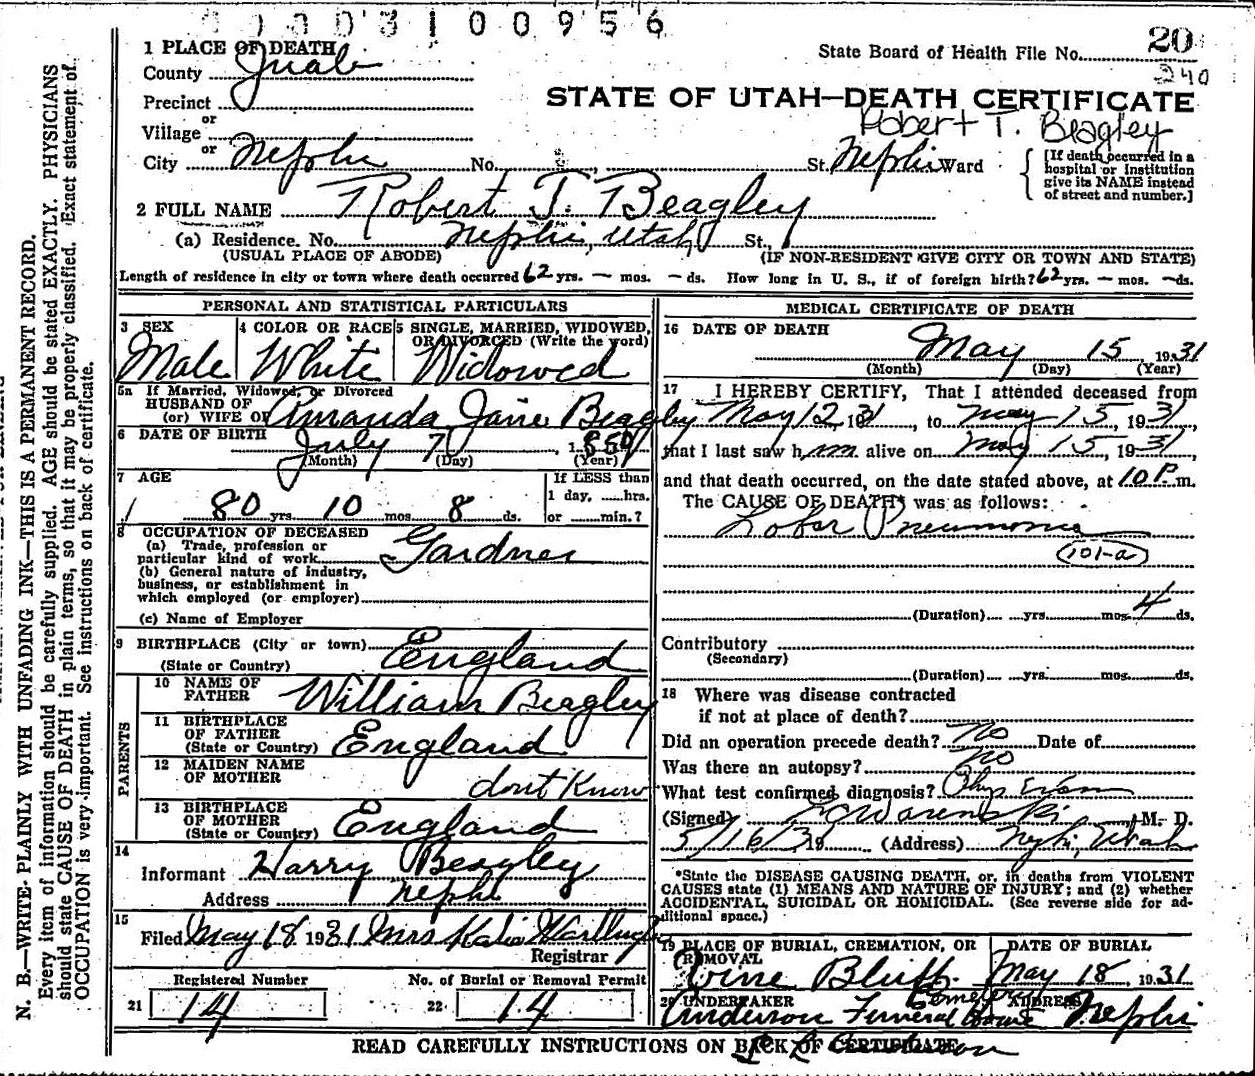 3 1 0 0 9 5 6
1 PLACE OF DEATH
County Juab
State Board of Health File No. 20
240
Precinct
STATE OF UTAH—DEATH CERTIFICATE
or
Village
Robert T. Beagley
or
City Nephi No. St. Nephi Ward
[If death occurred in a hospital or Institution give its NAME instead of street and number.]
2 FULL NAME Robert T. Beagley
(a) Residence. No. Nephi, Utah St.,
(USUAL PLACE OF ABODE) (IF NON-RESIDENT GIVE CITY OR TOWN AND STATE)
Length of residence in city or town where death occurred 62 yrs. — mos. — ds. How long in U. S., if of foreign birth? 62 yrs. — mos. — ds.
PERSONAL AND STATISTICAL PARTICULARS
3 SEX
Male
4 COLOR OR RACE
White
5 SINGLE, MARRIED, WIDOWED,
OR DIVORCED (Write the word)
Widowed
5a If Married, Widowed, or Divorced
HUSBAND OF
(or) WIFE OF Amanda Jane Beagley
6 DATE OF BIRTH July 7, 1850
(Month) (Day) (Year)
7 AGE
80 yrs. 10 mos. 8 ds.
If LESS than
1 day, hrs.
or min.?
8 OCCUPATION OF DECEASED
(a) Trade, profession or
particular kind of work Gardner
(b) General nature of industry,
business, or establishment in
which employed (or employer)
(c) Name of Employer
9 BIRTHPLACE (City or town)
(State or Country) England
PARENTS
10 NAME OF
FATHER William Beagley
11 BIRTHPLACE
OF FATHER
(State or Country) England
12 MAIDEN NAME
OF MOTHER dont Know
13 BIRTHPLACE
OF MOTHER
(State or Country) England
14
Informant Harry Beagley
Address Nephi
15
Filed May 18 1931 Mrs Katie
Registrar
Registered Number
21 14
No. of Burial or Removal Permit
22 14
MEDICAL CERTIFICATE OF DEATH
16 DATE OF DEATH
May 15, 1931
(Month) (Day) (Year)
17 I HEREBY CERTIFY, That I attended deceased from
May 12, 1931, to May 15, 1931,
that I last saw h im alive on May 15, 1931,
and that death occurred, on the date stated above, at 10 P. m.
The CAUSE OF DEATH* was as follows:
Lobar Pneumonia
101-a
(Duration) yrs. mos. 4 ds.
Contributory
(Secondary)
(Duration) yrs. mos. ds.
18 Where was disease contracted
if not at place of death?
Did an operation precede death? No Date of
Was there an autopsy? no
What test confirmed diagnosis? Phys Exam
(Signed) M. D.
5/16/31 19 (Address) Nephi, Utah
*State the DISEASE CAUSING DEATH, or, in deaths from VIOLENT
CAUSES state (1) MEANS AND NATURE OF INJURY; and (2) whether
ACCIDENTAL, SUICIDAL OR HOMICIDAL. (See reverse side for ad-
ditional space.)
19 PLACE OF BURIAL, CREMATION, OR
REMOVAL
Vine Bluff Cemetery
DATE OF BURIAL
May 18, 1931
20 UNDERTAKER
Anderson Funeral Home
ADDRESS
Nephi
READ CAREFULLY INSTRUCTIONS ON BACK OF CERTIFICATE
N. B.—WRITE PLAINLY WITH UNFADING INK—THIS IS A PERMANENT RECORD.
Every item of information should be carefully supplied. AGE should be stated EXACTLY. PHYSICIANS
should state CAUSE OF DEATH in plain terms, so that it may be properly classified. Exact statement of
OCCUPATION is very important. See instructions on back of certificate.